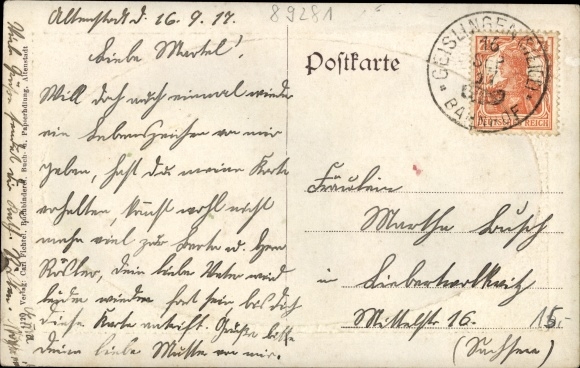 Altenstadt d. 16.9.17.
89281
Liebe Martel!
Will doch auch einmal wieder
ein Lebenszeichen von mir
geben, hast du meine Karte
erhalten, kannst wohl nicht
mehr viel zur Karte u. Herrn
Rösler, dein lieber Vater wird
leider wieder fort sein bis dich
diese Karte antrifft. Grüße bitte
deine liebe Mutter von mir.
Verlag: Carl Fichtel, Buchbinderei, Buch- u. Papierhdlung. Altenstadt
Postkarte
GEISLINGEN
16
DEUTSCHES REICH
Fräulein
Martha Busch
in Liebertwolkwitz
Mittelstr 16.
(Sachsen)
15,-